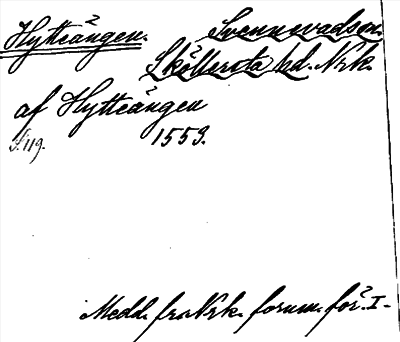 Hytteängen. Svennevadsn.
Sköllersta hd. Nrk.
af Hytteängen
S. 119. 1559.
Medd. fr. Nrk. fornm. för. I-